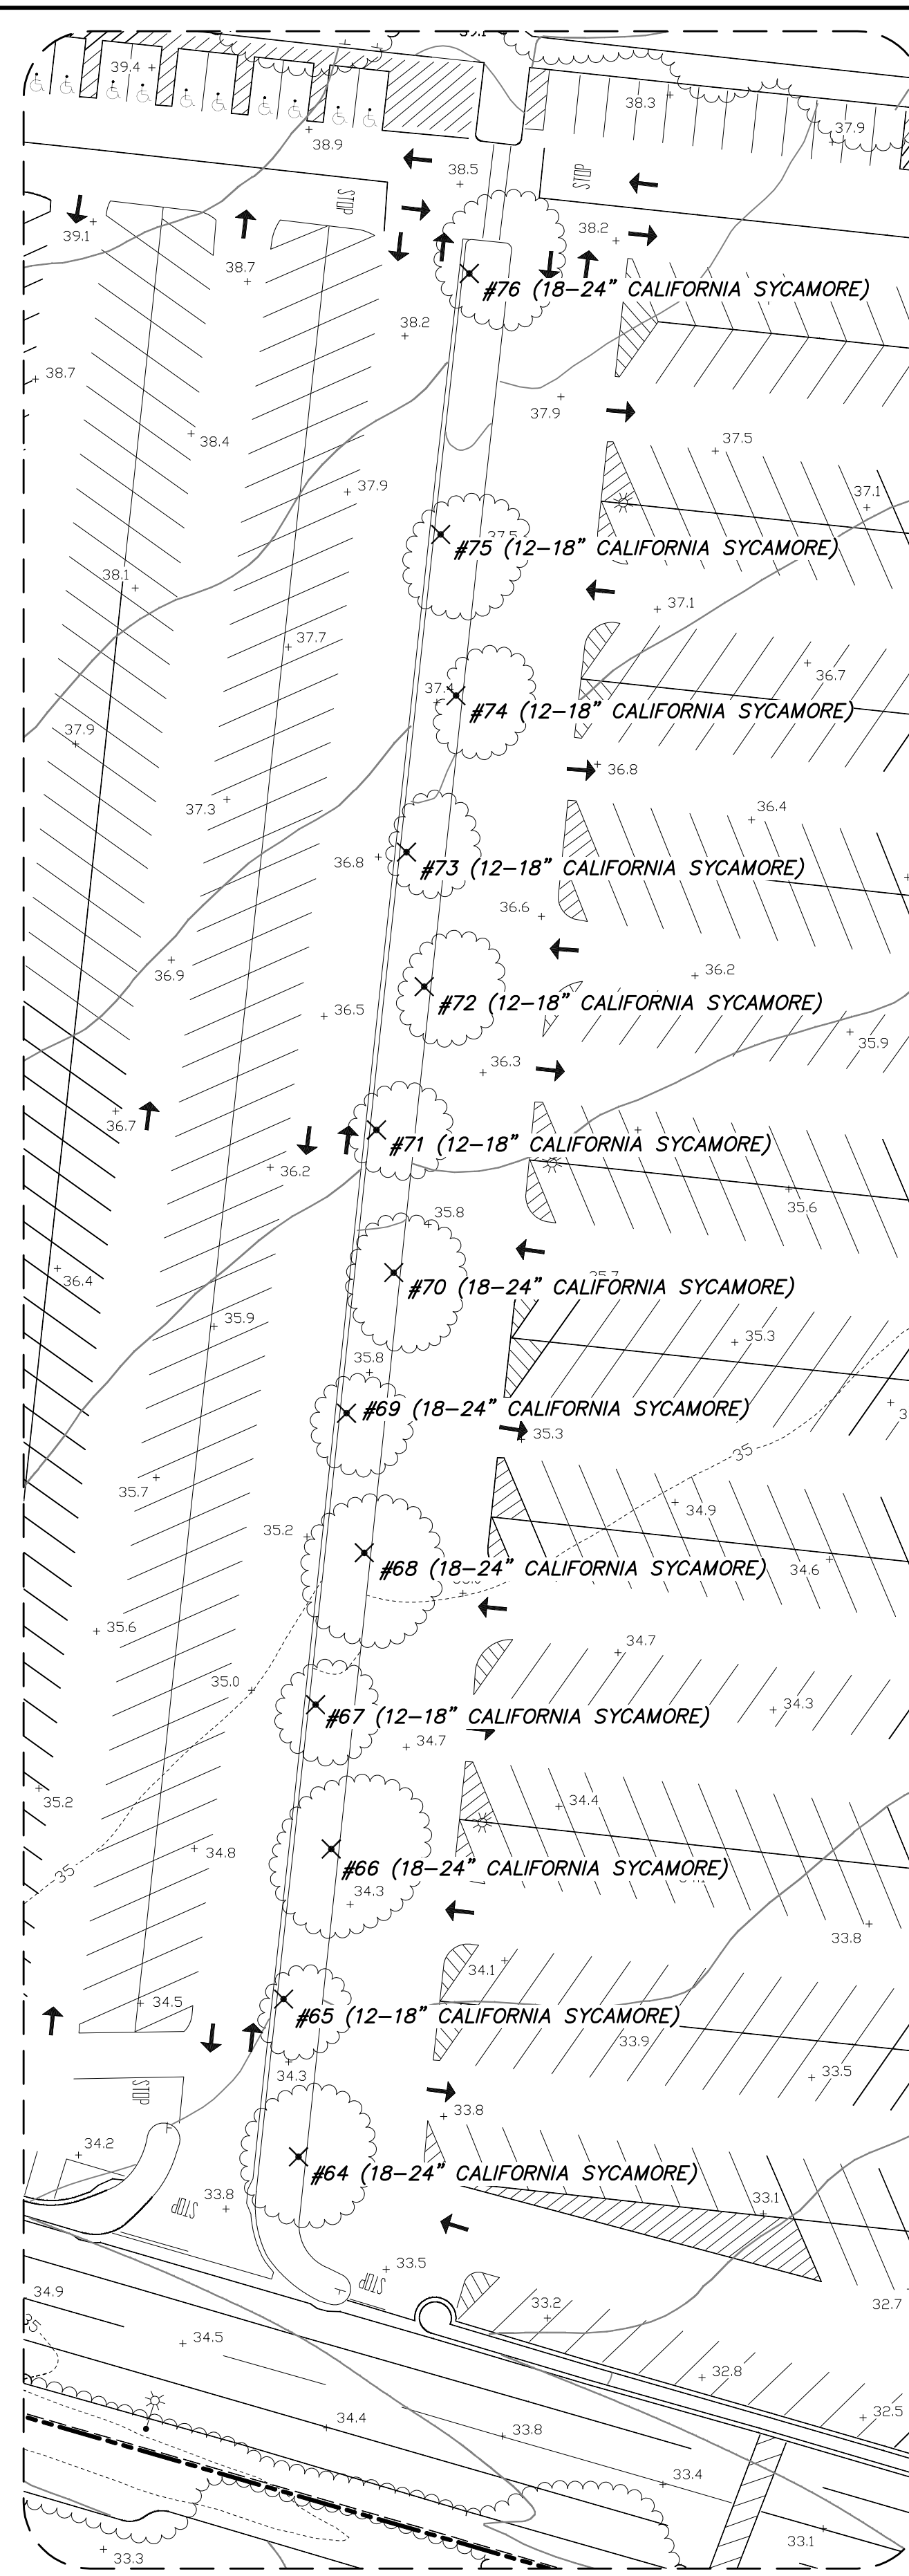 39.4
38.3
37.9
38.9
38.5
STOP
STOP
39.1
38.2
38.7
#76 (18-24" CALIFORNIA SYCAMORE)
38.2
38.7
37.9
38.4
37.5
37.9
37.1
37.5
#75 (12-18" CALIFORNIA SYCAMORE)
38.1
37.1
37.7
36.7
37.4
#74 (12-18" CALIFORNIA SYCAMORE)
37.9
36.8
37.3
36.4
36.8
#73 (12-18" CALIFORNIA SYCAMORE)
36.6
36.9
36.2
#72 (12-18" CALIFORNIA SYCAMORE)
36.5
35.9
36.3
36.7
#71 (12-18" CALIFORNIA SYCAMORE)
36.2
35.6
35.8
36.4
#70 (18-24" CALIFORNIA SYCAMORE)
35.9
35.3
35.8
#69 (18-24" CALIFORNIA SYCAMORE)
35.3
35
35.7
34.9
35.2
#68 (18-24" CALIFORNIA SYCAMORE)
34.6
35.6
34.7
35.0
34.3
#67 (12-18" CALIFORNIA SYCAMORE)
34.7
35.2
34.4
34.8
35
#66 (18-24" CALIFORNIA SYCAMORE)
34.3
33.8
34.1
34.5
#65 (12-18" CALIFORNIA SYCAMORE)
33.9
34.3
33.5
STOP
33.8
34.2
#64 (18-24" CALIFORNIA SYCAMORE)
33.8
STOP
33.1
33.5
STOP
34.9
33.2
32.7
35
34.5
32.8
34.4
33.8
32.5
33.4
33.1
33.3